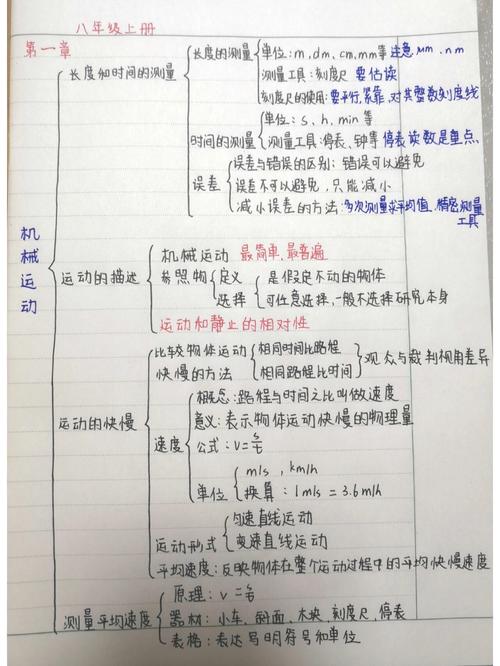 八年级上册
第一章
机械运动
长度和时间的测量
长度的测量
单位:m,dm,cm,mm等 注意μm、nm
测量工具:刻度尺 要估读
刻度尺的使用:要平行,紧靠,对其整数刻度线
时间的测量
单位:s、h、min等
测量工具:停表、钟等 停表读数是重点.
误差
误差与错误的区别:错误可以避免
误差不可以避免,只能减小
减小误差的方法:多次测量求平均值、精密测量
工具
运动的描述
机械运动 最简单,最普遍
参照物
定义
选择
是假定不动的物体
可任意选择,一般不选择研究本身
运动和静止的相对性
运动的快慢
比较物体运动
快慢的方法
相同时间比路程
相同路程比时间
观众与裁判视角差异
速度
概念:路程与时间之比叫做速度
意义:表示物体运动快慢的物理量
公式:v=s/t
单位
m/s,km/h
换算:1m/s=3.6m/h
运动形式
匀速直线运动
变速直线运动
平均速度:反映物体在整个运动过程中的平均快慢速度
测量平均速度
原理:v=s/t
器材:小车、斜面、木块、刻度尺、停表
表格:表达写明符号和单位